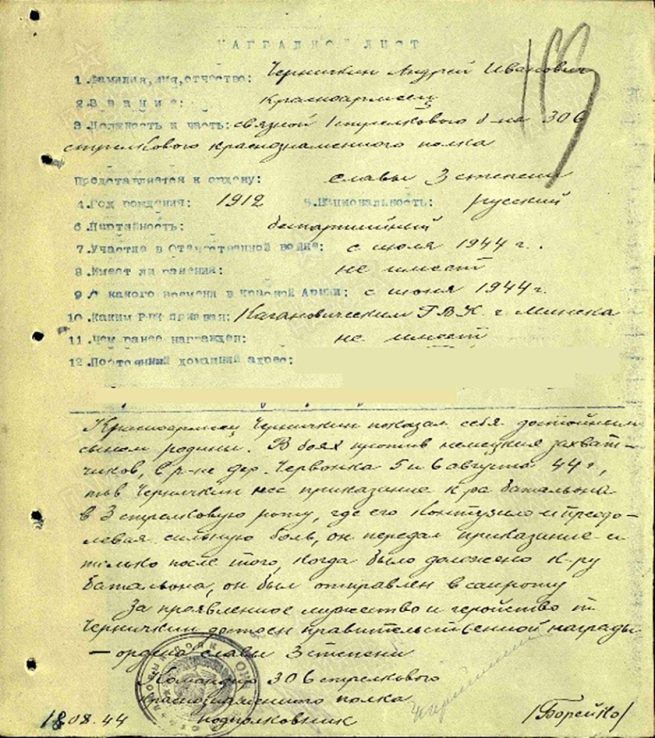 НАГРАДНОЙ ЛИСТ
1.Фамилия,имя,отчество: Черничкин Андрей Иванович
2.Звание: красноармеец
3.Должность и часть: связной 1 стрелкового б-на 306
стрелкового краснознаменного полка
Представляется к ордену: славы 3 степени
4.Год рождения: 1912 5.Национальность: русский
6.Партийность: беспартийный
7.Участие в Отечественной войне: с июля 1944 г.
8.Имеет ли ранения: не имеет
9.С какого времени в Красной Армии: с июня 1944 г.
10.Каким РВК призван: Кагановическим ГВК г. Минска
11.Чем ранее награжден: не имеет
12.Постоянный домашний адрес:
Красноармеец Черничкин показал себя достойным
сыном родины. В боях против немецких захват-
чиков в р-не дер. Червонка 5 и 6 августа 44 г,
тов Черничкин нес приказание к-ра батальона
в 3 стрелковую роту, где его контузило и преодо-
левая сильную боль, он передал приказание и
только после того, когда было доложено к-ру
батальона, он был отправлен в санроту
За проявленное мужество и геройство т.
Черничкин достоен правительственной награды
— ордена славы 3 степени
Командир 306 стрелкового
краснознаменного полка
подполковник /Борейко/
18.08.44